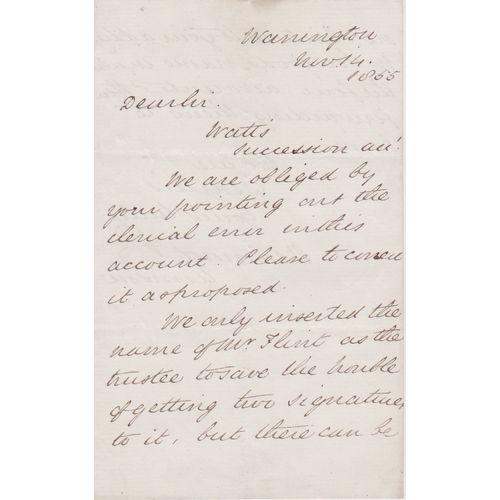 Warrington
Nov. 14.
1855
Dear Sir.
Watts
Succession act.
We are obliged by
your pointing out the
clerical error in this
account. Please to correct
it as proposed.
We only inserted the
name of Mr. Flint as the
trustee to save the trouble
of getting two signatures
to it, but there can be